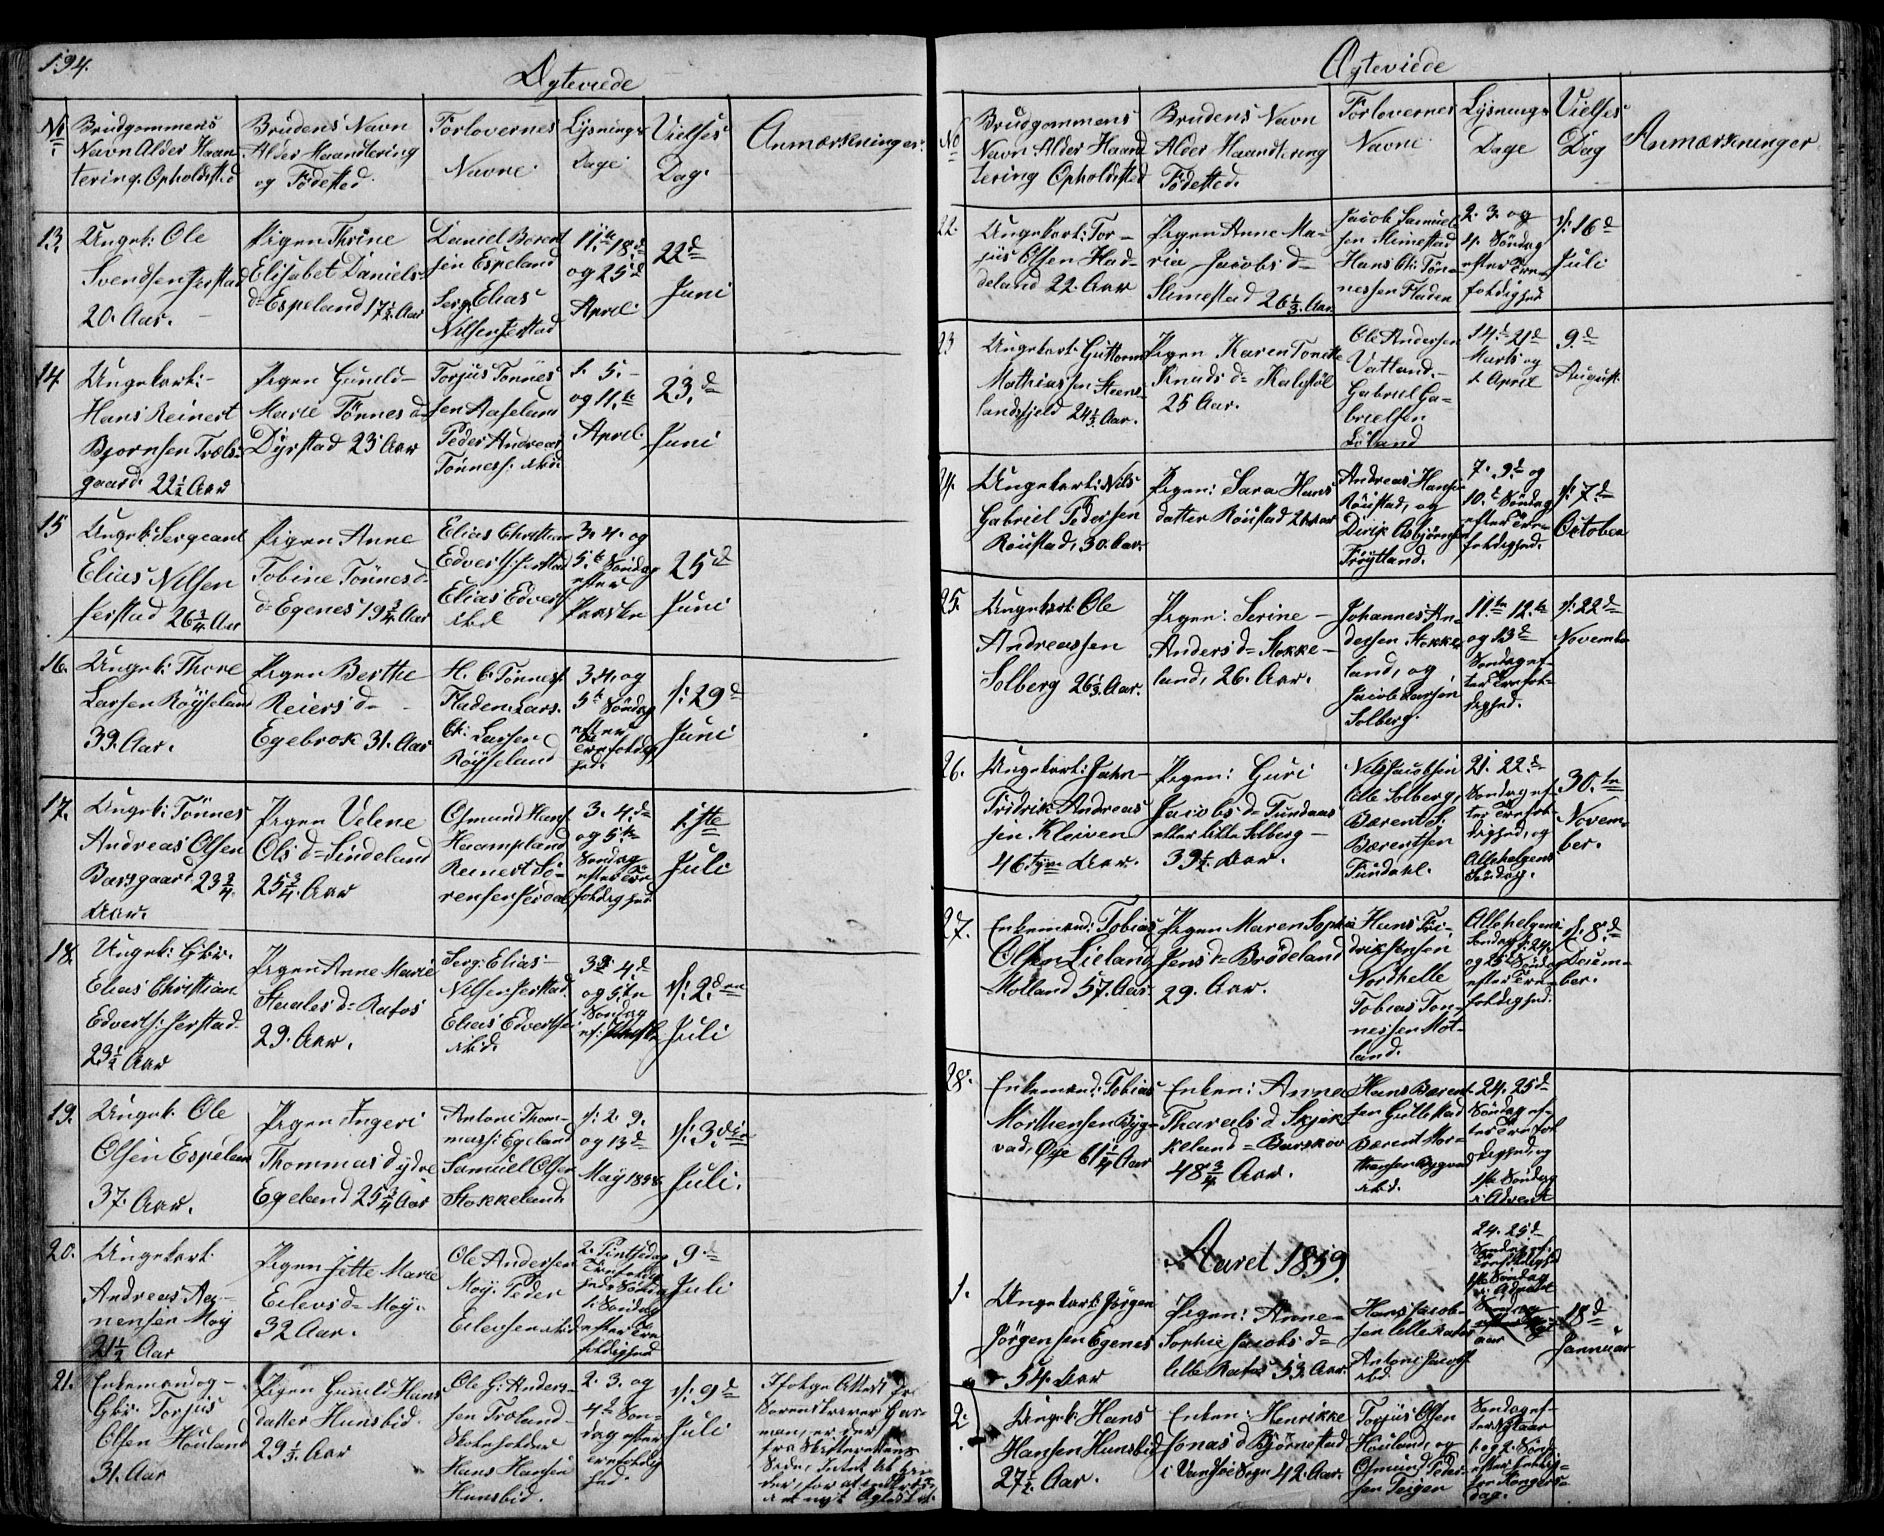 194.
Ægteviede
No
Brudgommens
Navn Alder Haan-
tering. Opholdssted
Brudens Navn
Alder Haandtering
og Fødested.
Forlovernes
Navne.
Lysnings
Dage.
Vielses
Dag.
Anmærkninger.
13.
Ungk: Ole
Svendsen Jerstad
20. Aar.
Pigen Thrine
Elisabet Daniels-
d= Espeland 17½ Aar
Daniel Berent
sen Espeland
Serg. Elias
Nilsen Jerstad
11te 18d
og 25d
April
22d
Juni
14
Ungekarl:
Hans Reinert
Bjornsen Træls-
gaard. 22½ Aar
Pigen Gunild
Marie Tønnes d=
Dyrstad 23 Aar
Torjus Tønnes
sen Aaseland
Peder Andreas
Tønness: ibid
5.
og 11te
April
23.d
Juni
15
Ungk: Sergeant
Elias Nilsen
Jerstad 26¾ Aar
Pigen Anne
Tobine Tønnes
d= Egenes 19¾ Aar
Elias Christian
Edverts: Jerstad
Elias Edverts
ibid
3. 4. og
5te Søndag
efter
Paaske
25d
Juni
16.
Ungk: Thore
Larsen Røyseland
39. Aar.
Pigen Berthe
Reiers d=
Egebrok 31. Aar
H. C. Tønness
Fladen. Lars
Ch. Larsen
Røyseland
3. 4. og
5te Søndag
efter
Trefoldig-
hed.
d: 29d
Juni
17.
Ungk: Tønnes
Andreas Olsen
Barsgaard. 23¾
Aar.
Pigen Velene
Ols d= Sindeland
25¾ Aar
Osmund Hans
Haampland
Reinert Sø-
rensen
3. 4.d
og 5te
Søndag
efter Tre
foldighed
1ste
Juli
18.
Ungk: Gbr.
Elias Christian
Edverts: Jerstad
23½ Aar
Pigen Anne Marie
d= Rafos
29. Aar.
Serg: Elias
Nilsen Jerstad.
Elias Edvertsen
ibid.
3d 4.d
og 5te
Søndag
ef:
d: 2den
Juli
19.
Ungk: Ole
Olsen Espeland
37. Aar.
Pigen Ingeri
Thommas d ydre
Egeland 25¼ Aar
Antoni Thom-
mass: Egeland
Samuel Olsen
Stokkeland
d: 2. 9.
og 13d
May 1858
d: 3die
Juli.
20.
Ungekarl
Andreas Aa-
nensen Moy
21½ Aar
Pigen Jette Marie
Eilevs d= Moy.
32 Aar.
Ole Andersen
Moy. Peder
Eilevsen ibid
2. Pintsedag
Trefoldig-
heds Søndag
1. Søndag
efter Tre
foldighed
9.d
Juli
21.
Enkemand og
Gbr. Torjus
Olsen Houland
31. Aar
Pigen Gunild Hans
datter Hunsbid.
29⅓ Aar
Ole G. Anders-
sen Froland
Skoleholder
Hans Hansen
Hunsbid.
2. 3. og
4d Søn-
dag efter
Trefoldig
hed
d: 9d
Juli
Ifølge Attest fra
Sorenskriver Gar-
man, er der
fra Skifterettens
Side, Intet at hin-
der, for at indtræde
i et nyt Ægteskab.
Ægteviede
No
Brudgommens
Navn Alder Haand
tering Opholdssted
Brudens Navn
Alder Haandtering
Fødested.
Forlovernes
Navne
Lysnings
Dage
Vielses
Dag
Anmærkninger.
22.
Ungekarl: Tor-
jus Olsen Had-
deland 22 Aar
Pigen Anne Ma-
ria Jacobs d=
Slimestad 26⅓. Aar.
Jacob Samuel
sen Slimestad
Hans Ch: Tøn-
nessen Fladen
2. 3. og
4. Søndag
efter Tre-
foldighed
d: 16d
Juli
23
Ungekarl: Guttorm
Mathiassen Steens-
landsfjeld 24⅓. Aar.
Pigen Karen Tonette
Knuds d= Kalvsføl
25 Aar.
Ole Andersen
Vatland.
Gabriel Ga-
brielsen
Loland
14d 21d
Marts og
April
9d
August.
24.
Ungekarl: Nils
Gabriel Pedersen
Roustad, 30. Aar.
Pigen: Sara Hans
datter Roustad Aar
Andreas Hansen
Roustad, og
Dirik Asbjørnsen
Frøytland.
7. 9d og
10.d Søndag
efter Tre-
foldighed.
d: 7d
October
25.
Ungekarl: Ole
Andreassen
Solberg 26⅔. Aar.
Pigen: Serine
Anders d= Stokke-
land, 26. Aar.
Johannes An-
dersen Stokke-
land, og
Jacob Larsen
Solberg.
11te 12te
og 13d
Søndag ef-
ter Trefol-
dighed.
d: 22d
November
26.
Ungekarl: Jahn
Fridrik Andreas
sen Kleiven
46. Aar.
Pigen: Guri
Jacobs d= Fundaas
eller Lille Solberg
39½. Aar.
Nils Jacobsen
Lille Solberg,
Bærent S.
Bærentsen
Fundahl.
21. 22.d
Søndag ef-
ter Trefol-
dighed, og
Allehelgens
Søndag.
30.te
Novem-
ber.
27.
Enkemand: Tobias
Olsen Lieland
Motland 57. Aar
Pigen Maren Sophie
Jens d= Brødeland
29. Aar.
Hans Fri-
drik Jensen
Nordhelle
Tobias Tøn-
nessen Mot-
land.
Allehelgens
Søndag d: 24.
og 25d Søndag
efter Tre-
foldighed.
d: 8.d
Decem-
ber.
28.
Enkemand: Tobias
Morthensen Byg-
vad, Øye 61¼ Aar
Enken: Anne
Tharalds d. Skjek-
keland = Barskov
48¾ Aar.
Hans Bærent-
sen Gullestad
Bærent Mor-
thensen Bygvad
ibid.
24. 25d
Søndag ef-
ter Trefol
dighed, og
1ste Søndag
i Advent
Aaret 1859.
1.
Ungekarl: Jørgen
Jørgensen Egenes
54. Aar
Pigen: Anne
Sophie Jacobs d=
lille Rafos 53. Aar.
Hans Jacob-
sen lille Rafos
Antoni Jacobs
ibid.
24. 25d
Søndag ef.
Trefoldighed
1ste Søndag
i Advent
18d
Januar
2.
Ungk: Hans
Hansen Hunsbid
27½ Aar.
Enken: Henrikke
Jonas d Bjørnestad
i Vandsøe Sogn 42. Aar.
Torjus Olsen
Houland, og
Osmund Peder-
sen Teigen
Søndag ef-
ter Nytaar
1. og 2. Sønd.
efter Hellig-
tre Kongers-
dag.